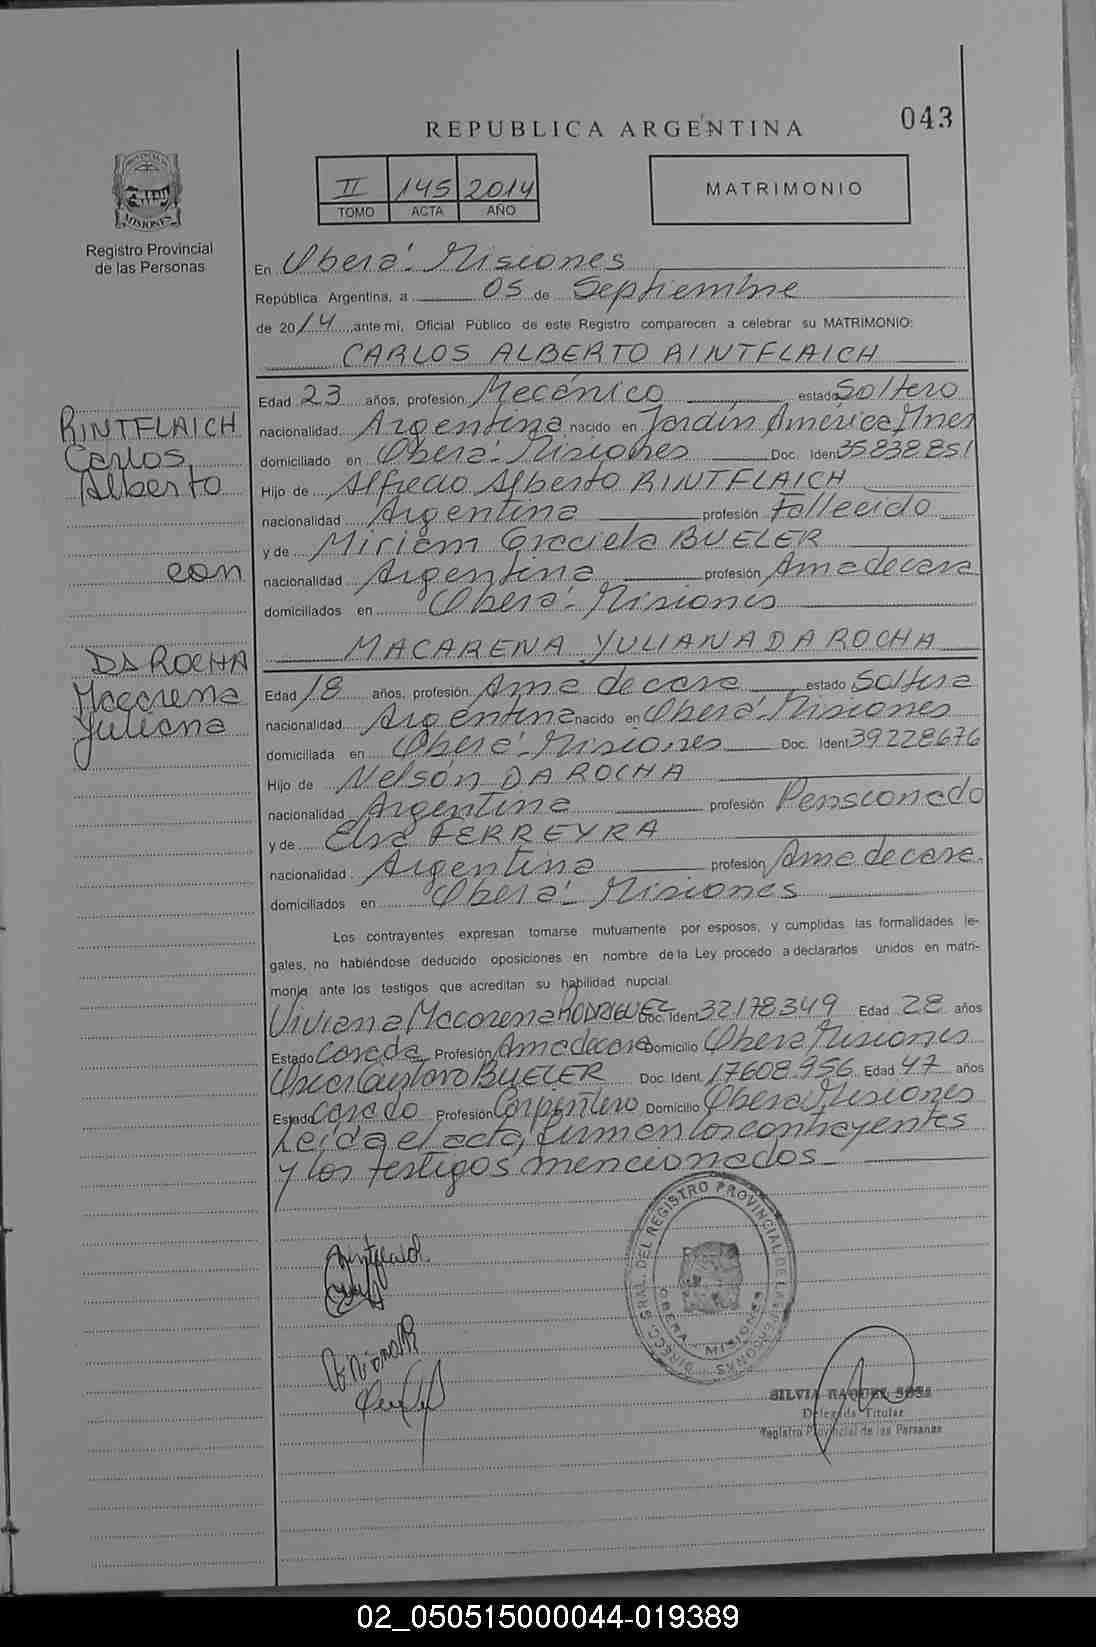 043
REPUBLICA ARGENTINA
II 145 2014
TOMO ACTA AÑO
MATRIMONIO
PROVINCIA DE
MISIONES
Registro Provincial
de las Personas
En Oberá - Misiones
República Argentina, a 05 de Septiembre
de 2014, ante mi, Oficial Público de este Registro comparecen a celebrar su MATRIMONIO:
CARLOS ALBERTO RINTFLAICH
Edad 23 años, profesión Mecánico estado Soltero
nacionalidad Argentina nacido en Jardín América Mnes
domiciliado en Oberá - Misiones Doc. Ident 35.838.851
Hijo de Alfredo Alberto RINTFLAICH
nacionalidad Argentina profesión Fallecido
y de Miriam Graciela BUELER
nacionalidad Argentina profesión Ama de casa
domiciliados en Oberá - Misiones
MACARENA YULIANA DA ROCHA
Edad 18 años, profesión Ama de casa estado Soltera
nacionalidad Argentina nacido en Oberá - Misiones
domiciliada en Oberá - Misiones Doc. Ident 39228676
Hijo de Nelsón DA ROCHA
nacionalidad Argentina profesión Pensionado
y de Elsa FERREYRA
nacionalidad Argentina profesión Ama de casa.
domiciliados en Oberá - Misiones
Los contrayentes expresan tomarse mutuamente por esposos, y cumplidas las formalidades le-
gales, no habiéndose deducido oposiciones en nombre de la Ley procedo a declararlos unidos en matri-
monio ante los testigos que acreditan su habilidad nupcial.
Viviana Macarena RODRIGUEZ Doc. Ident 32.178.349 Edad 28 años
Estado Casada Profesión Ama de casa Domicilio Oberá Misiones
Oscar Gustavo BUELER Doc. Ident. 17608.956 Edad 47 años
Estado Casado Profesión Carpintero Domicilio Oberá Misiones
Leída el acta, firman los contrayentes
y los testigos mencionados
RINTFLAICH
Carlos
Alberto
con
DA ROCHA
Macarena
Yuliana
Rintflaich
DIRECC. GRAL. DEL REGISTRO PROVINCIAL DE LAS PERSONAS
OBERA MISIONES
SILVIA RAQUEL SOSA
Delegada Titular
Registro Provincial de las Personas
02_050515000044-019389